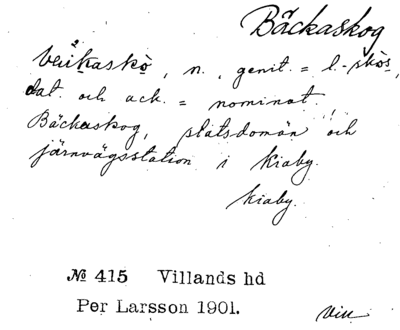 Bäckaskog
bäikaskò, n., genit. = l.-skòs,
dat. och ack. = nominat.
Bäckaskog, statsdomän och
järnvägsstation i Kiaby.
Kiaby.
№ 415 Villands hd
Per Larsson 1901.